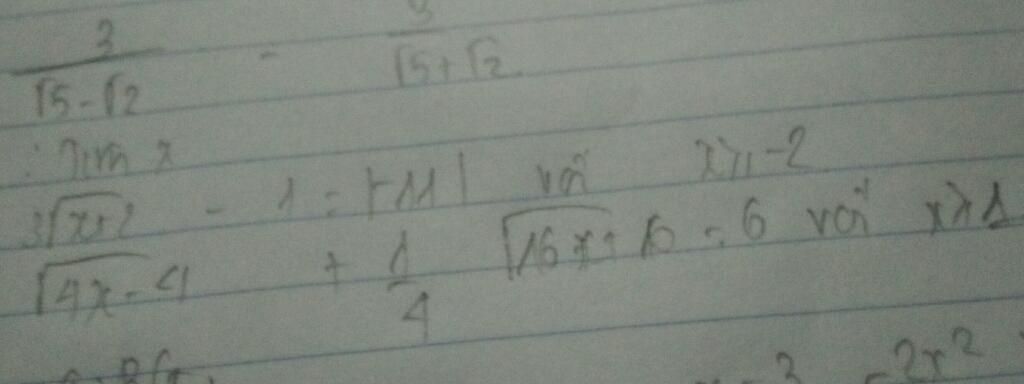 3/(√5-√2) - 3/(√5+√2)
: Tìm x
3√(x+2) - 1 = |-11| với x ≥ -2
√(4x-4) + 1/4 √(16x-16) = 6 với x ≥ 1
-2x²